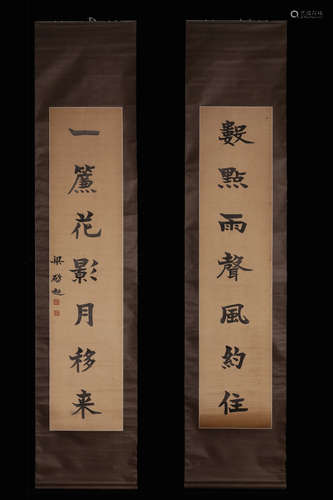 數點雨聲風約住
一簾花影月移来
梁啟超